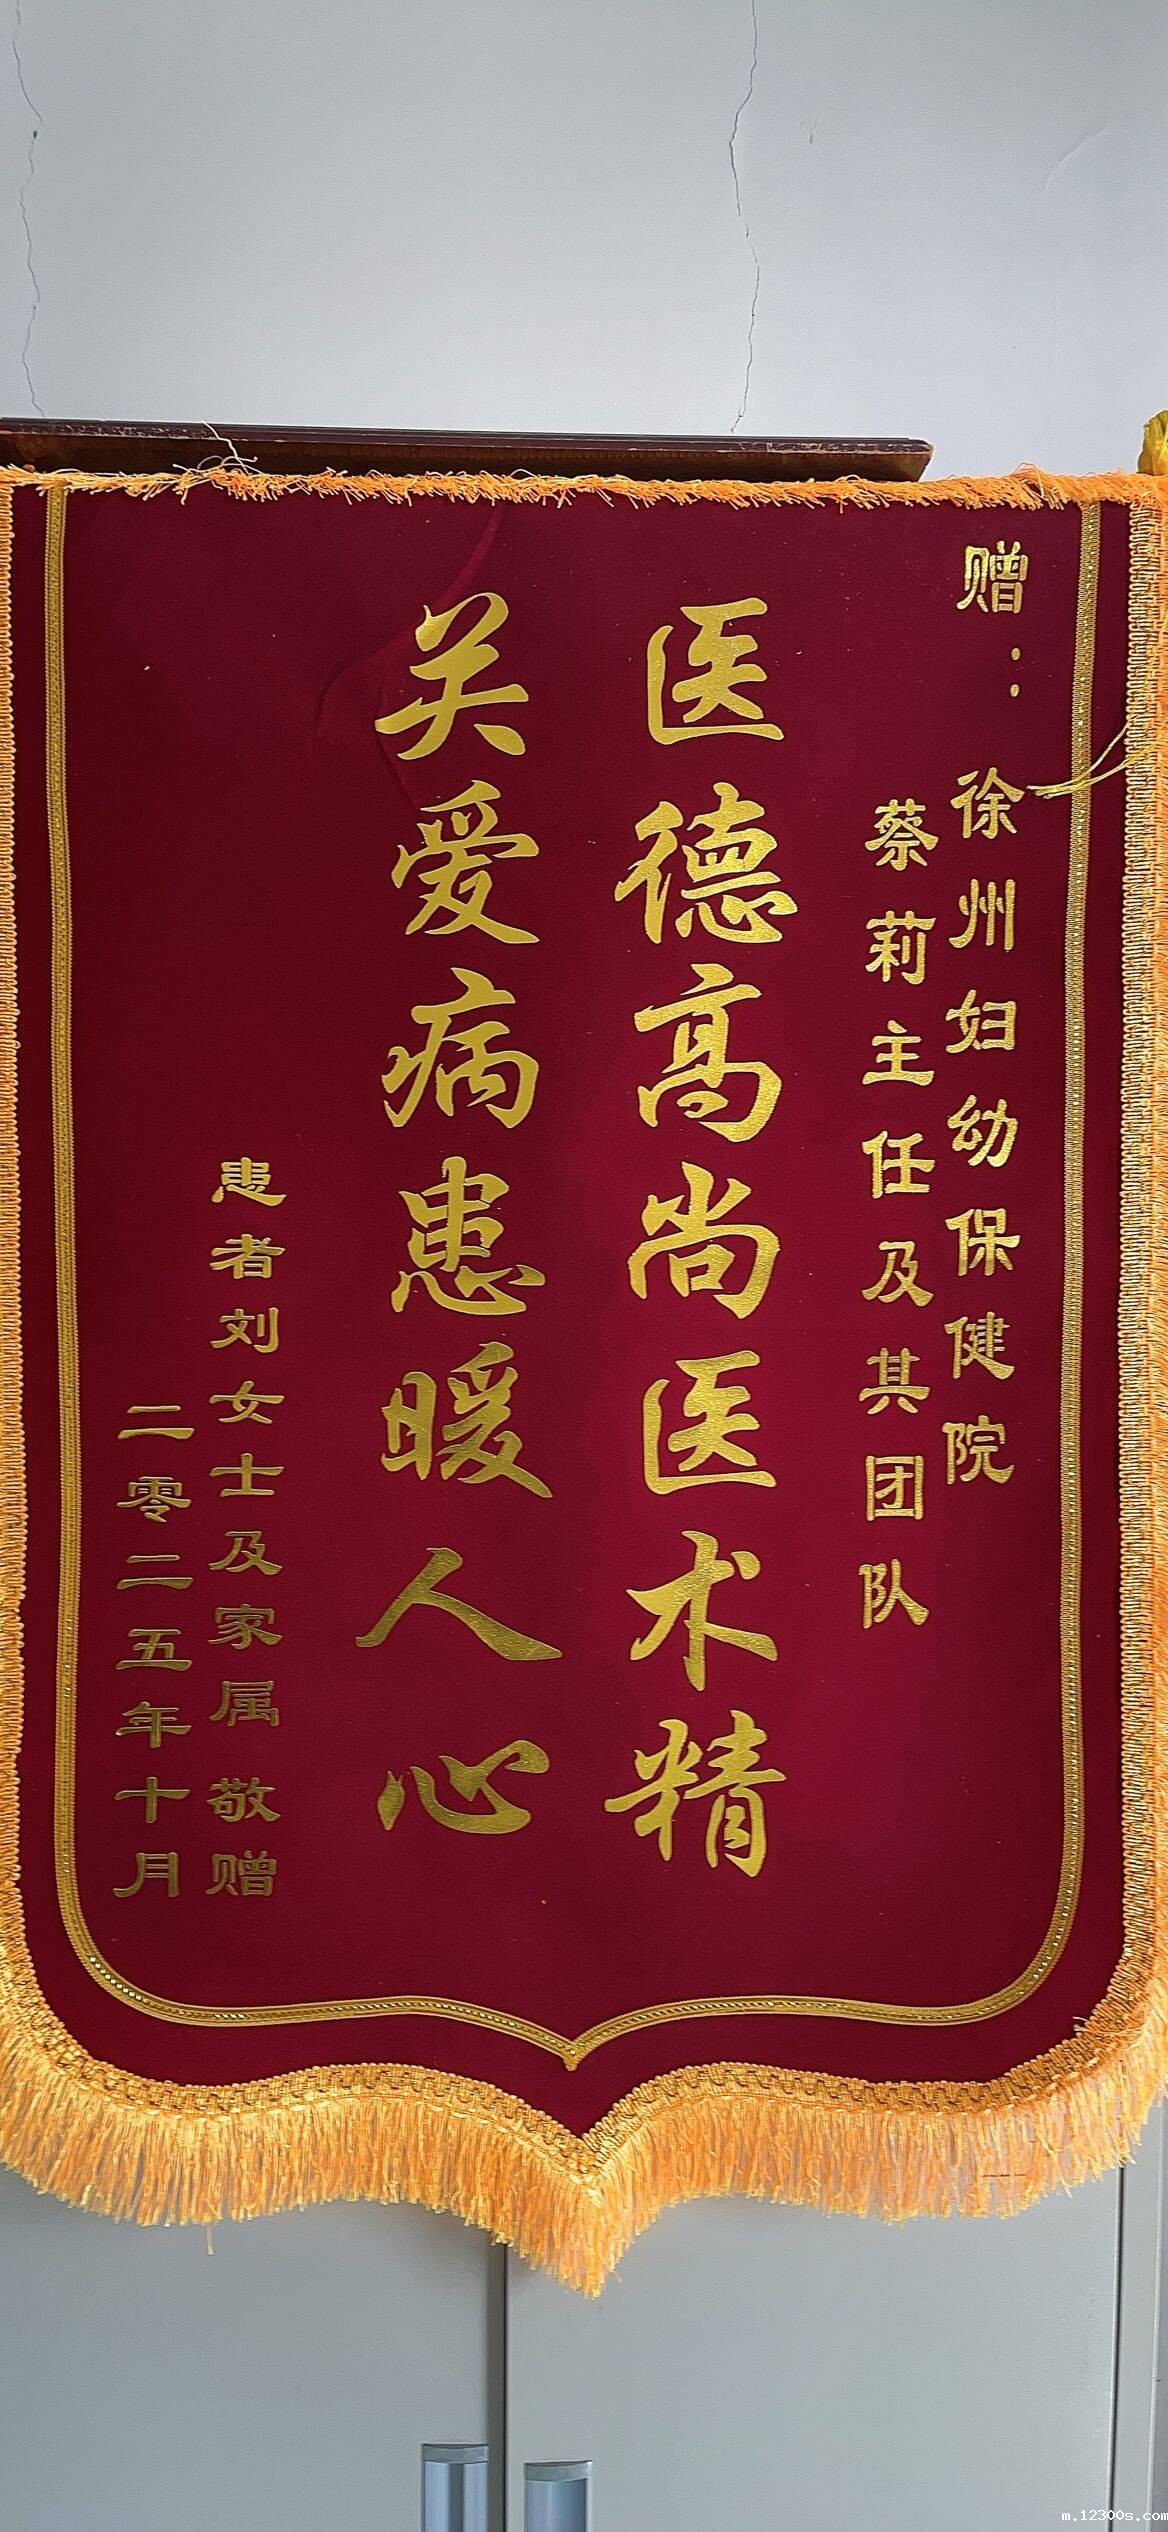 赠：徐州妇幼保健院
蔡莉主任及其团队
医德高尚医术精
关爱病患暖人心
患者刘女士及家属 敬赠
二零二五年十月
m.12300s.com